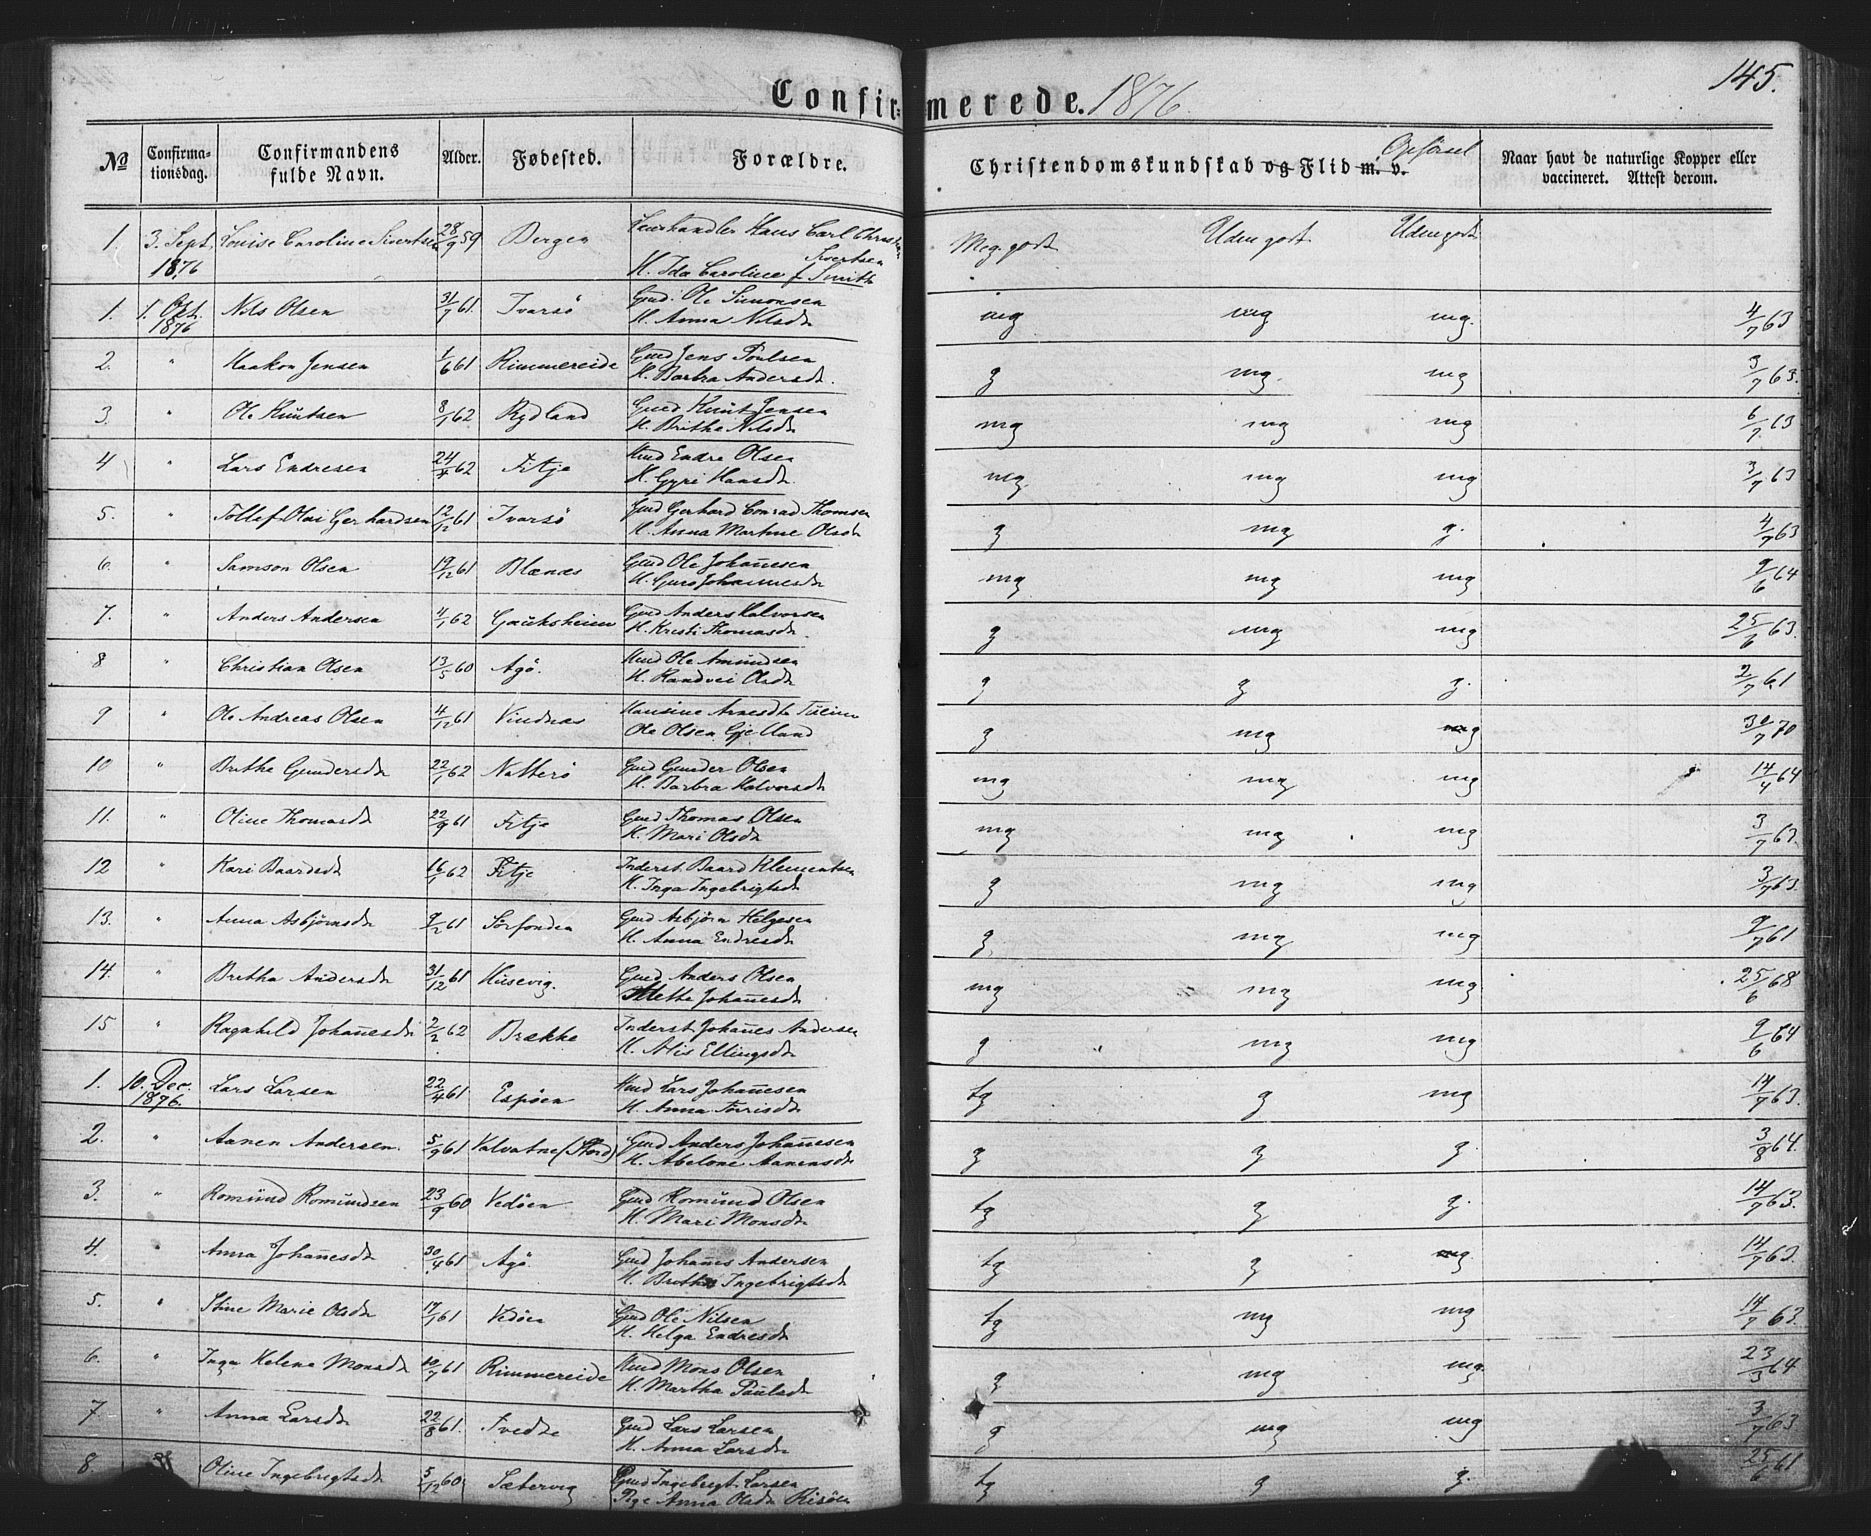 145.
Confirmerede. 1876.
No
Confirmationsdag.
Confirmandens fulde Navn.
Alder.
Fødested.
Forældre.
Christendomskundskab og Flid m. v. Opførsel
Naar havt de naturlige Kopper eller vaccineret. Attest derom.
1. 3. Sept. 1876 Louise Caroline Sivertsen 28/9 59 Bergen Hans Carl Christian Sivertsen H. Ida Caroline f Smith Meg. godt Udm. godt Udm. godt
1. 1. Okt. 1876 Nils Olsen 31/7 61 Ivarsö Gmd. Ole Simonsen H. Anna Nilsdr mg mg mg. 4/7 63
2. " Haakon Jensen 1/6 61 Rimmereide Gmd Jens Poulsen H. Barbra Andersdr. g mg. mg 3/7 63.
3. " Ole Knutsen 8/1 62 Rydland Gmd Knut Jensen H. Brithe Nilsdr mg mg mg 6/7 63
4 " Lars Endresen 24/4 62 Fitje Hmd Endre Olsen H. Gyri Hansdr. mg. mg mg 3/7 63
5. " Tollef Olai Gerhardsen 12/12 61 Ivarsö Gmd Gerhard Conrad Thomsen H. Anna Martine Olsdr g mg g. 4/7 63
6. " Samson Olsen 19/12 61 Blænes Gmd Ole Johannesen H. Guro Johannesdr mg mg mg 9/6 64
7. " Anders Andersen 4/1 62 Gauksheim Gmd Anders Halvorsen H. Kristi Thomasdr. g mg mg 25/6 63.
8 " Christian Olsen 13/5 60 Agö. Hmd Ole Amundsen H. Randvei Olsdr g g g. 2/7 61
9 " Ole Andreas Olsen 4/12 61 Vindnes Hansine Arnesdr Ole Olsen g mg mg 30/7 70
10 " Brithe Gundersdr 22/1 62 Natterö Gmd Gunder Olsen H. Barbra Halvorsdr mg mg mg 14/7 64
11. " Oline Thomasdr 22/9 61 Fitje Gmd Thomas Olsen H. Mari Olsdr mg mg mg 3/7 63.
12 " Kari Baardsdr 16/1 62 Fitje Inderst. Baard Klementsen H. Inga Ingebrigtsdr g mg mg 3/7 63.
13. " Anna Asbjørnsdr 9/2 61 Sørfonden Gmd Asbjørn Helgesen H. Anna Endresdr g mg mg 9/7 61
14. " Bretha Andersdr 31/12 61 Husevig. Gmd Anders Olsen Mette Johanesdr mg mg mg 25/6 68
15 " Ragnhild Johanesdr 2/2 62 Brække Inderst Johanes Andersen H. Alis Ellingsdr g mg mg 9/6 64
1. 10. Dec. 1876. Lars Larsen 22/4 61 Espöen Hmd Lars Johanesen H. Anna Torrisdr tg g mg 14/7 63.
2. " Aanen Andersen. 5/9 61 Valvatne (Stord) Gmd Anders Johanesen H. Abelone Aanensdr g g g 3/8 64.
3. " Romund Romundsen 23/9 60 Vedöen Gmd Romund Olsen H. Mari Monsdr tg g g. 14/7 63.
4. " Anna Johanesdr 30/4 61 Agö. Gmd Johanes Andersen H. Brethe Ingebrigtsdr tg g mg 14/7 63.
5. " Stine Marie Olsdr 17/1 61 Vedöen Gmd Ole Nilsen H. Helga Endresdr tg mg mg 14/7 63.
6. " Inga Helena Monsdr 10/7 61 Rimmereide Hmd Mons Olsen H. Martha Paulsdr g mg mg. 23/3 64
7 " Anna Larsdr 22/8 61. Tvedte Gmd Lars Larsen H. Anna Larsdr g mg mg 3/7 63
8. " Oline Ingebrigtsdr 5/12 60 Sætervig Gmd Ingebrigt Larsen Pige Anna Olsdr Risöen tg g g. 25/6 61